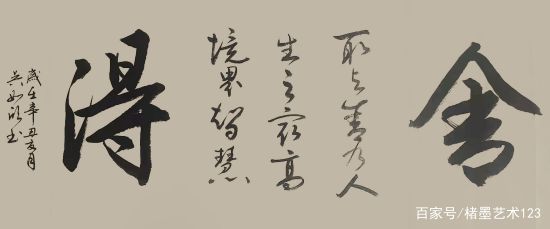 舍
取与乃人
生之最高
境界智慧
得
歲在辛丑亥月
书
百家号/楮墨艺术123